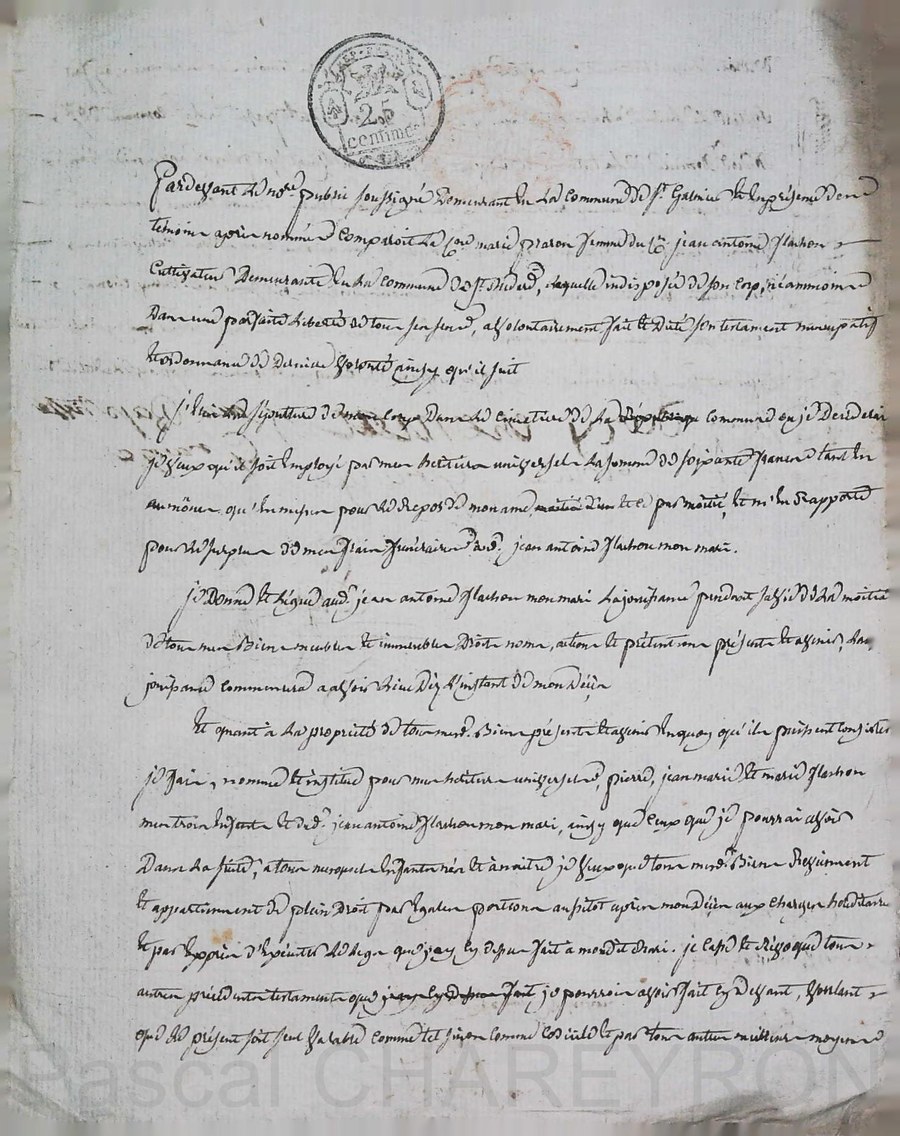 REP. FRA.
25
centimes
Pardevant le no.re public soussigné demeurant en la Commune de st. Galmier et en présence des
témoins après nommés Comparoit la C.ne marie femme du C.en jean antoine flachon
Cultivateur Demeurante en la Commune de st. , laquelle indisposée de son corps, néanmoins
Dans une parfaite liberté de tous ses sens, a volontairement fait et dicté son testament nuncupatif
et ordonnance de derniere volonté ainsy qu'il suit
sépulture de mon corps Dans le cimetiere de la commune ou je Decederai
je veux qu'il soit employé par mes heritiers universels la somme de soixante francs tant en
aumônes qu'en messes pour le Repos de mon ame par moitié, et m'en Rapporte
pour le surplus de mes frais funeraires aud. jean antoine flachon mon mari.
je Donne et légue aud. jean antoine flachon mon mari la jouissance pendant sa vie de la moitié
de tous mes Biens meubles et immeubles Droits noms, actions et prétentions présents et avenir, la
jouissance commencera a avoir lieu Dès l'instant de mon Décès
Et quant a la propriété de tous mesd. Biens présents et avenir en quoy qu'ils puissent consister
je fais, nomme et institue pour mes heritiers universels, pierre, jean marie et marie flachon
mes trois enfants et dud. jean antoine flachon mon mari, ainsy que ceux que je pourrai avoir
Dans la suite, a tous mesquels enfants nés et a naitre je veux que tous mesdits Biens Reviennent
et appartiennent de plein Droit par egales portions aussitot après mon Décès aux charges héréditaires
et par exprès d'exécuter le legs que j'ay cy dessus fait a mondit mari. je casse et révoque tous
autres précédents testaments que j'ay cy dessus fait je pourrois avoir fait cy devant, voulant
que le présent soit seul valable comme tel sinon comme codicile et par tous autres meilleurs moyens
Pascal CHAREYRON